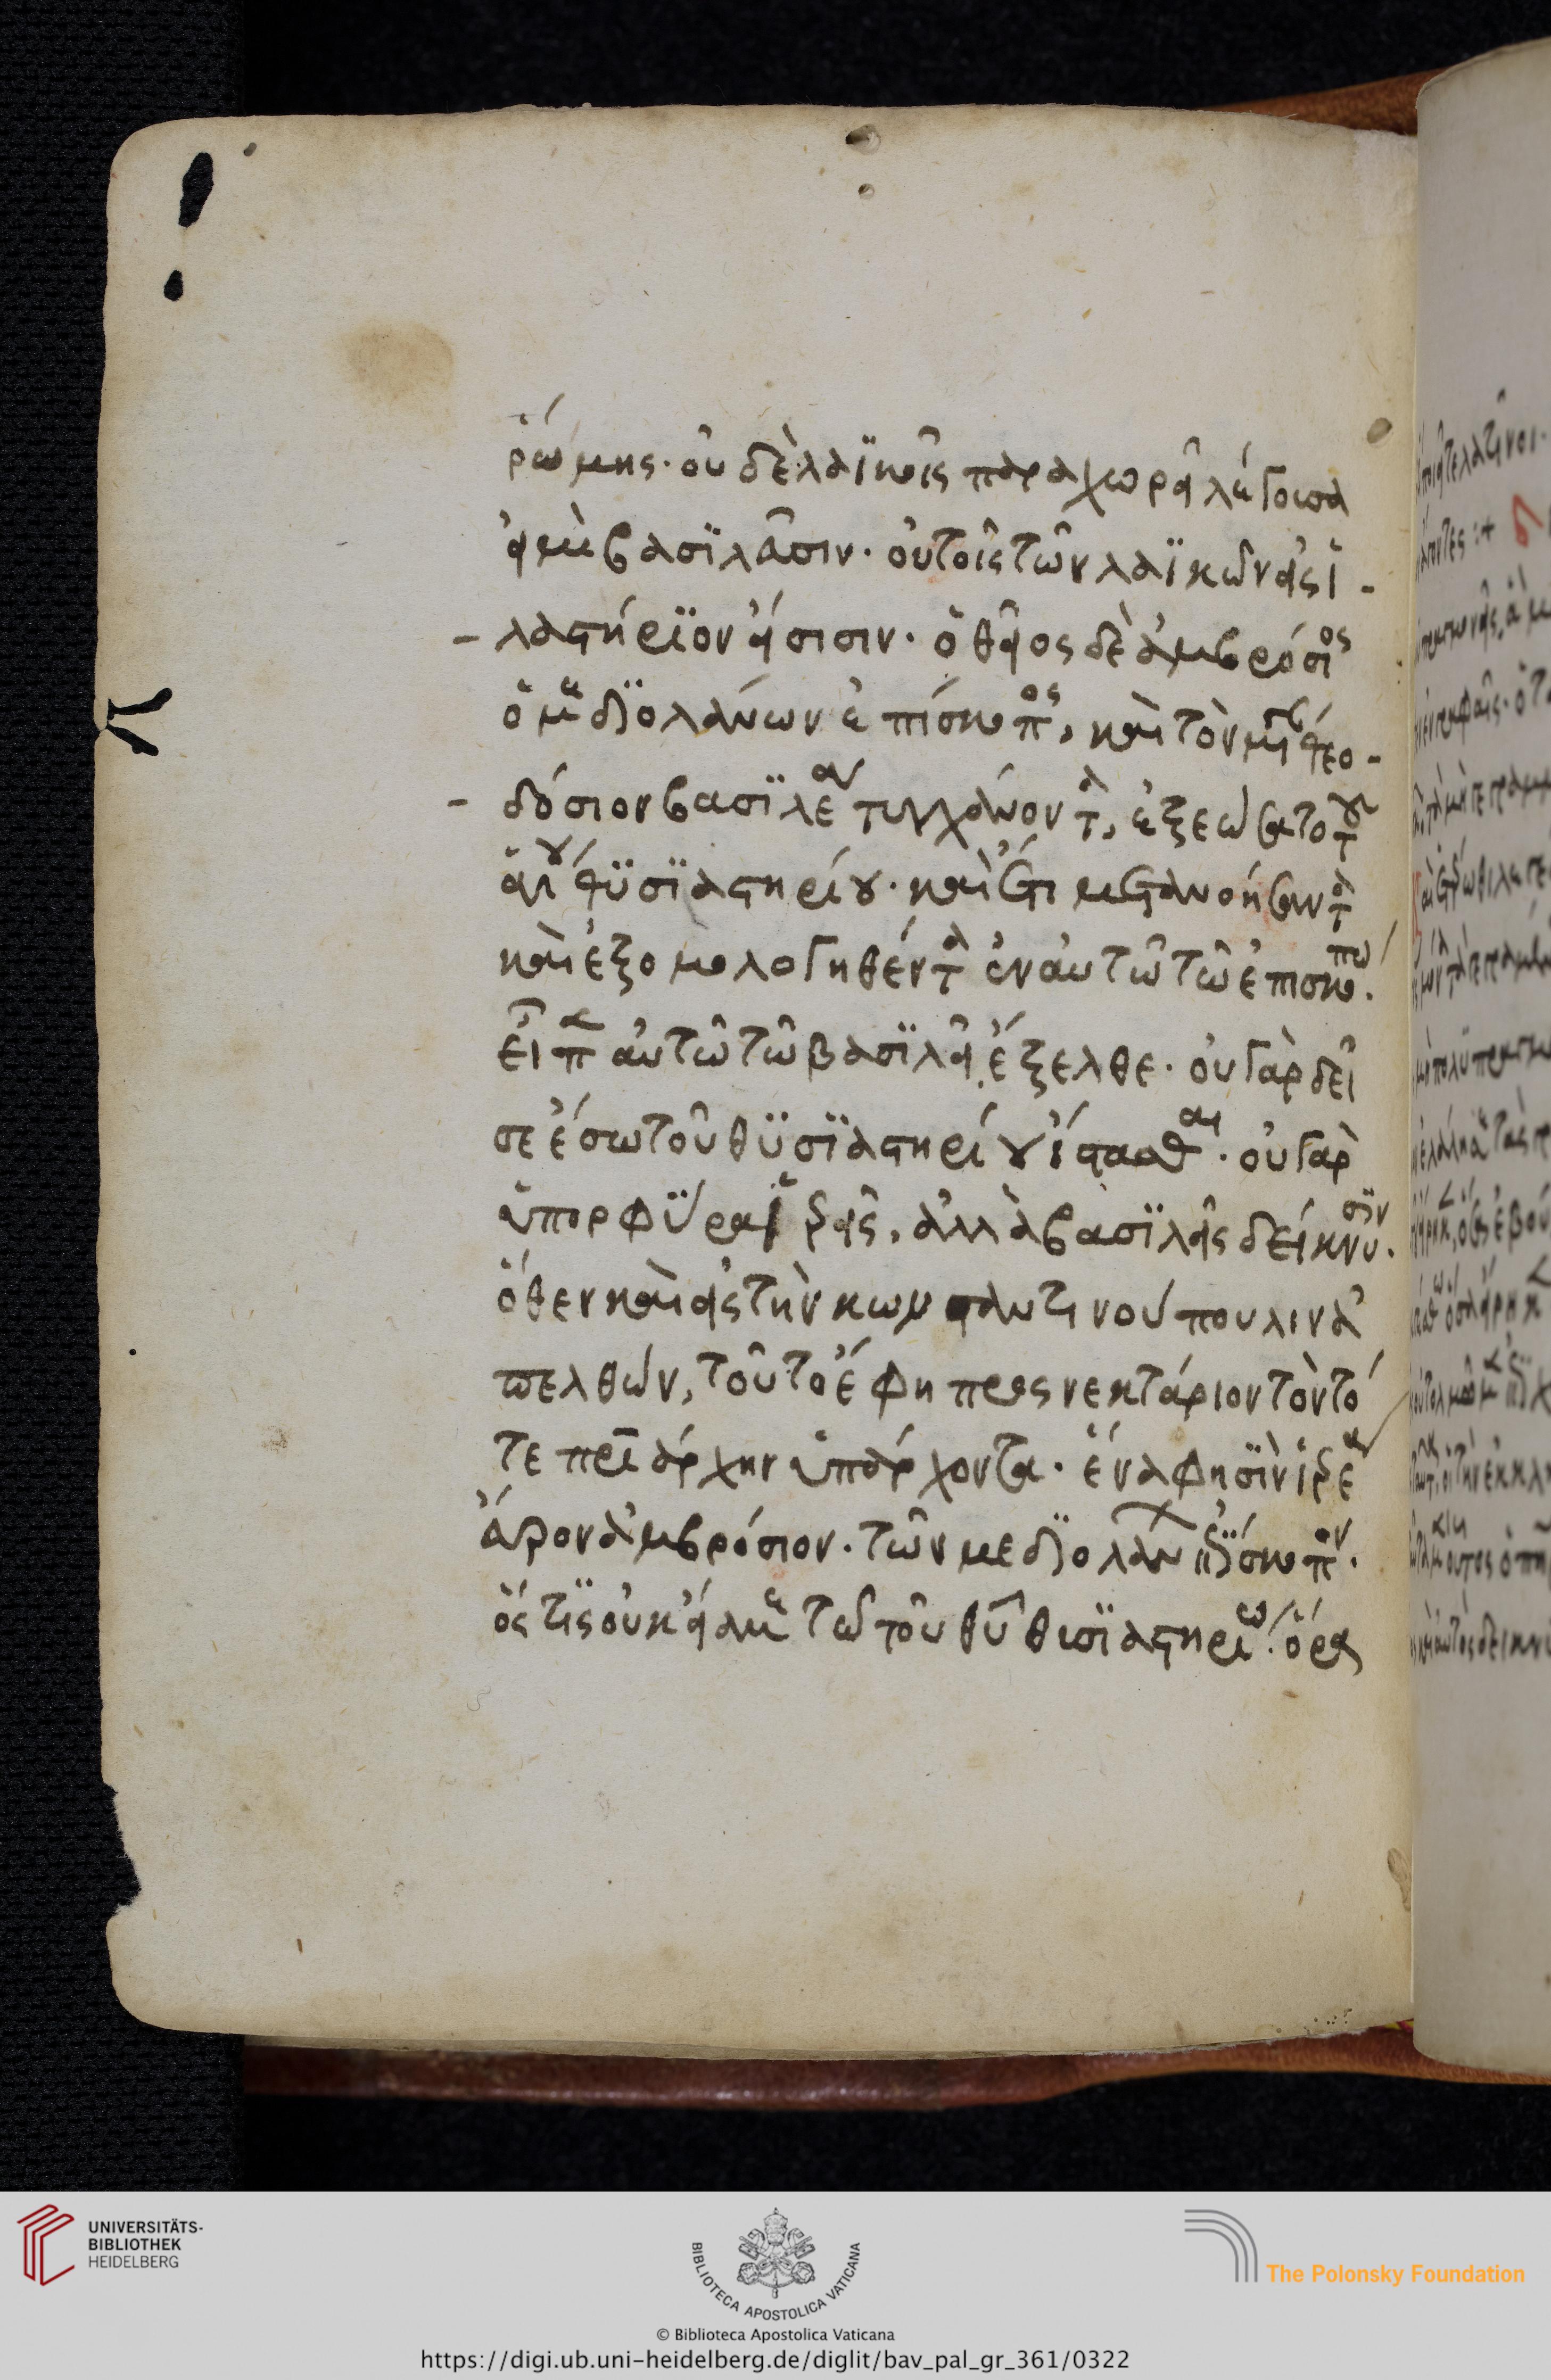 ῥώμης· οὐδὲ λαϊκοῖς παραχωρεῖ λέγουσα
εἰ μὴ βασιλεῦσιν· οὐ τοῖς τῶν λαϊκῶν εἰς ἱ-
-λαστήριον εἴσισιν· ὁ θεῖος δὲ ἀμβρόσιος
ὁ μεδιολάνων ἐπίσκοπος, καὶ τὸν μέγαν θεο-
-δόσιον βασιλέα τυγχάνοντα, ἐξεώσατο τοῦ
ἁγίου θυσιαστηρίου· καὶ ἔτι μετανοήσαντα
καὶ ἐξομολογηθέντα ἐν αὐτῶ τῶ ἐπισκόπω.
εἶπε αὐτῶ τῶ βασιλεῖ, ἔξελθε· οὐ γὰρ δεῖ
σε ἔσω τοῦ θυσιαστηρίου ἵστασθαι· οὐ γὰρ
ἡ πορφύρα ἱερεῖς, ἀλλὰ βασιλεῖς δείκνυσιν.
ὅθεν καὶ εἰς τὴν κωνσταντινούπουλιν ἀ
πελθών, τοῦτο ἔφη πρὸς νεκτάριον τὸν τό
τε πριάρχην ὑπάρχοντα· ἕνα φησὶν ἱερέα
ἄρον ἀμβρόσιον· τῶν μεδιολάνων ἐπίσκοπον.
ὅς τις οὐκ εἴασε με τῶ τοῦ θυ θυσιαστηρίω· ὅρα
UNIVERSITÄTS-
BIBLIOTHEK
HEIDELBERG
BIBLIOTECA APOSTOLICA VATICANA
The Polonsky Foundation
© Biblioteca Apostolica Vaticana
https://digi.ub.uni-heidelberg.de/diglit/bav_pal_gr_361/0322